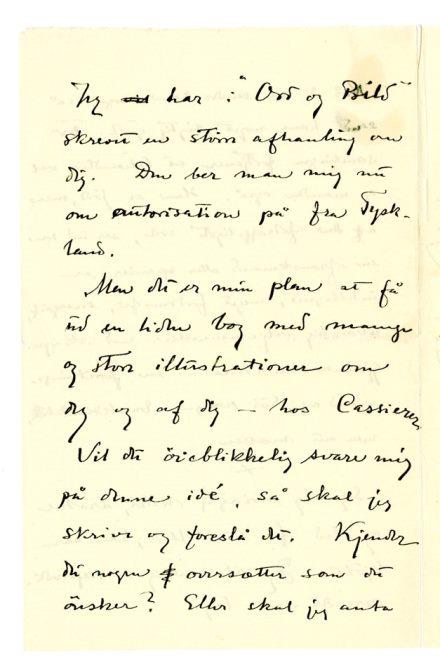 Jeg har i "Ord og Bild"
skrevet en større afhanling om
dig. Den ber man mig nu
om autorisation på fra Tysk-
land.
Men det er min plan at få
ud en liden bog med mange
og store illustrationer om
dig og af dig — hos Cassierer
Vil du öieblikkelig svare mig
på denne idé, så skal jeg
skrive og foreslå det. Kjender
du nogen oversætter som du
önsker? Eller skal jeg anta